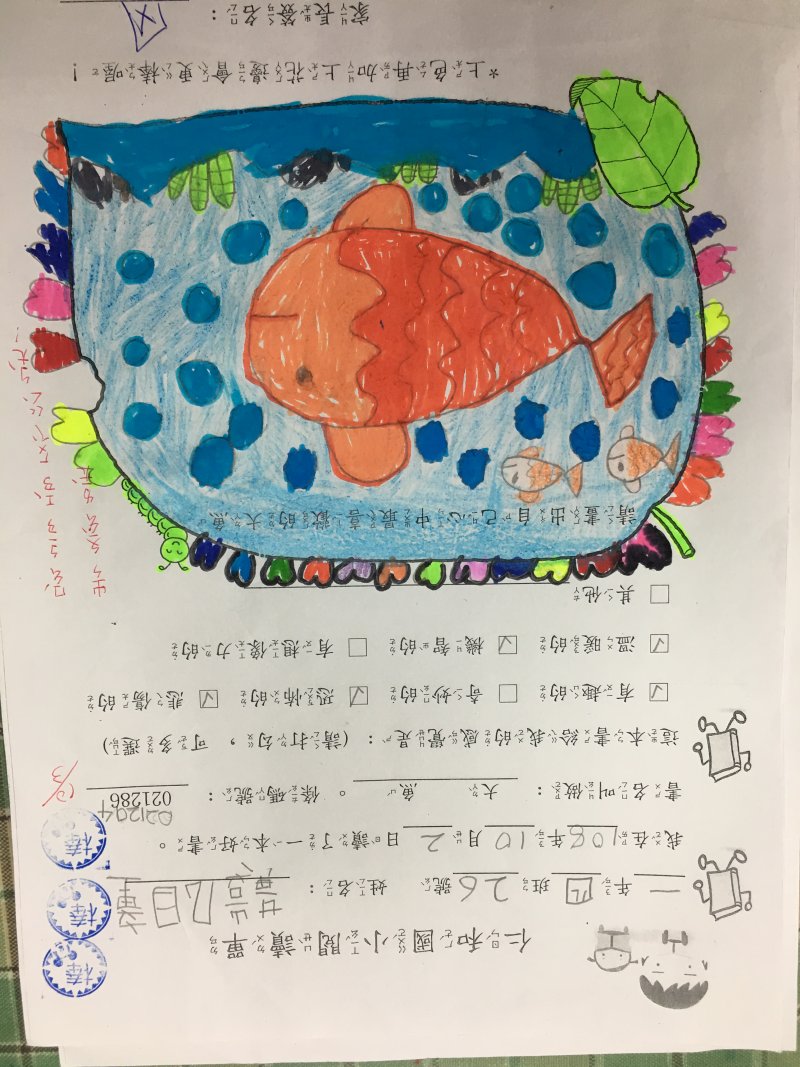 仁和國小閱讀單
一年四班26號 姓名：
棒
棒
棒
我在108年10月2日讀了一本好書。
書名叫做：大魚。條碼號：021286
021294
這本書給我的感覺是：(請打勾，可多選)
☑有趣的 □奇妙的 ☑恐怖的 ☑悲傷的
☑溫暖的 ☑機智的 □有想像力的
□其他
請畫出自己心中最喜歡的大魚
*上色再加上花邊會更棒喔！
家長簽名：